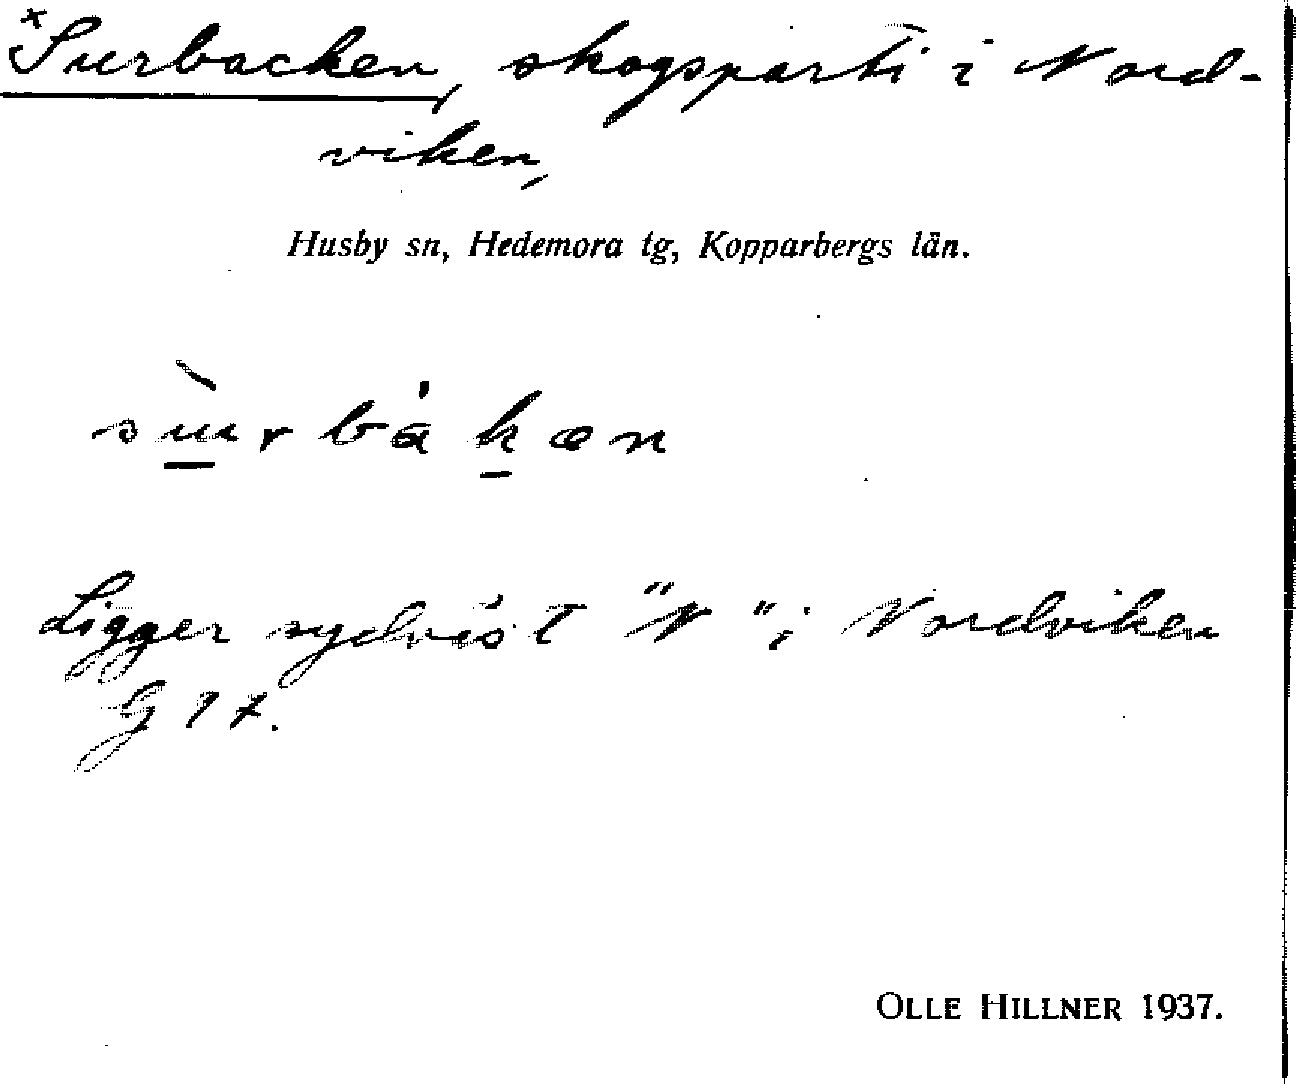 ×Surbacken, skogsparti i Nord-
viken,
Husby sn, Hedemora tg, Kopparbergs län.
sùrbákæn
Ligger sydväst "N" i Nordviken
G 17.
OLLE HILLNER 1937.